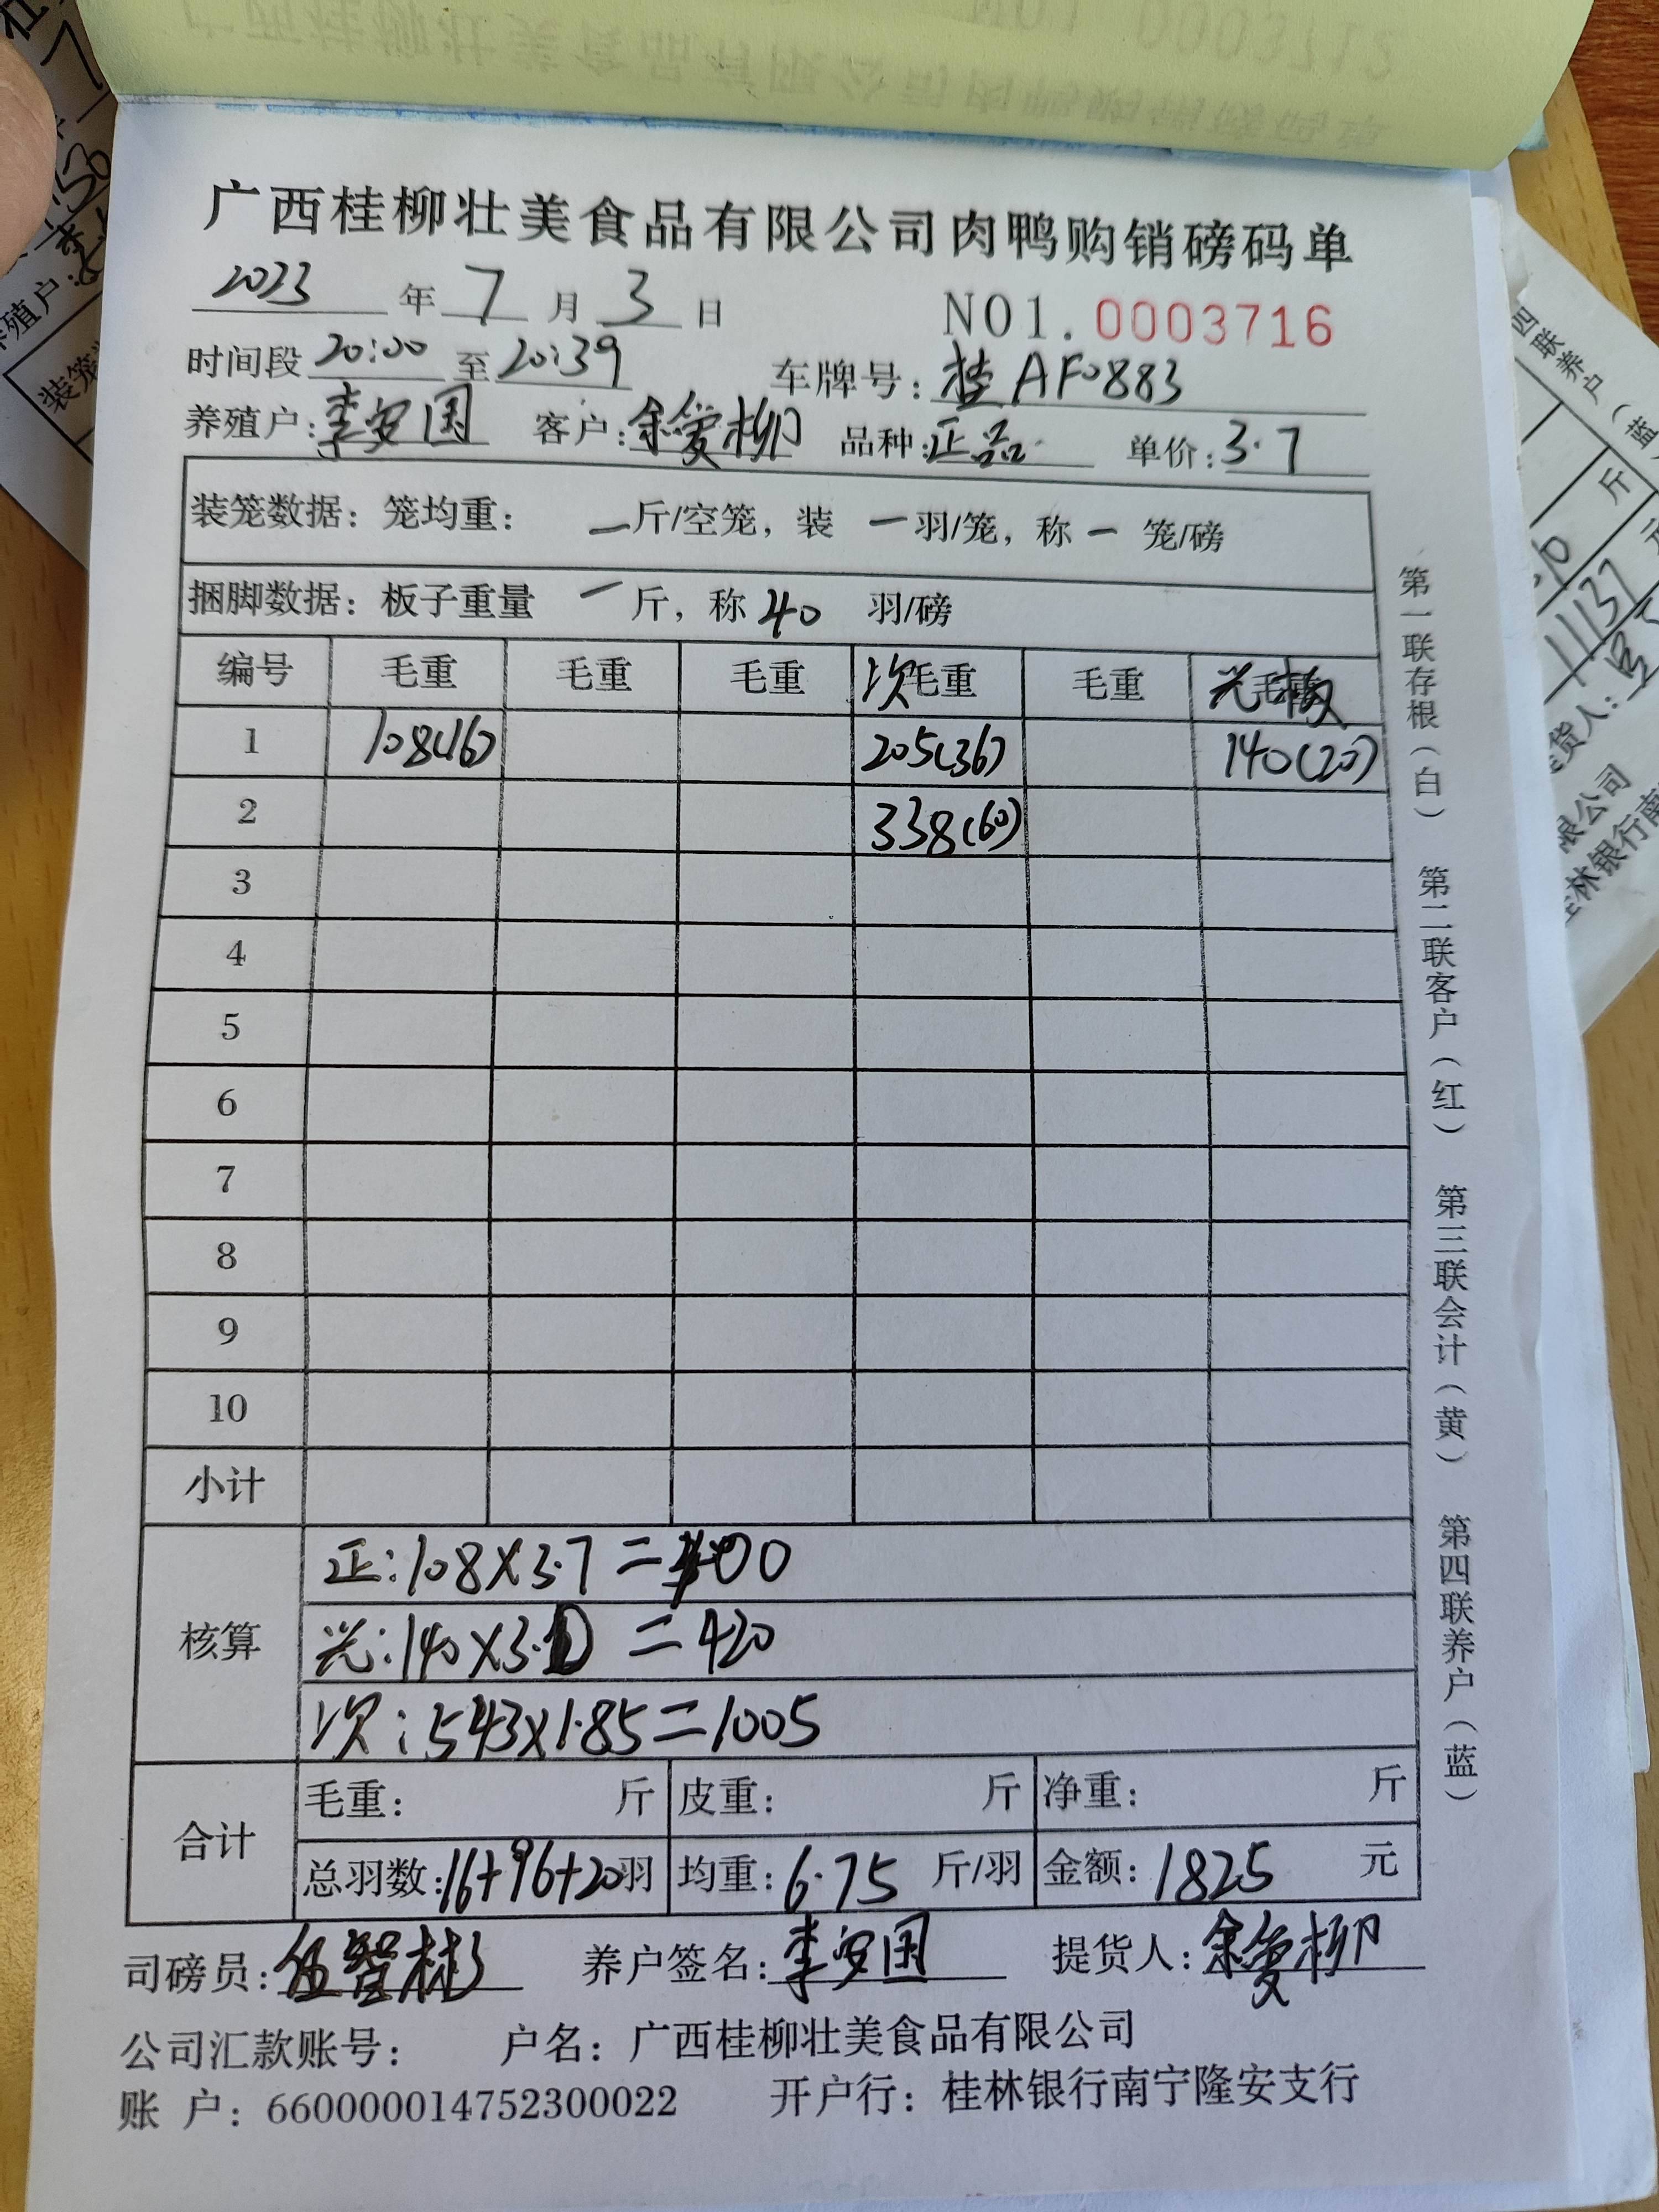 广西桂柳壮美食品有限公司肉鸭购销磅码单
2023 年 7 月 3 日
NO1. 0003716
时间段 20:00 至 20:39 车牌号: 桂AF0883
养殖户: 李安国 客户: 余爱柳 品种: 正品 单价: 3.7
装笼数据: 笼均重: — 斤/空笼, 装 — 羽/笼, 称 — 笼/磅
捆脚数据: 板子重量 — 斤, 称 40 羽/磅
编号 毛重 毛重 毛重 次毛重 毛重 光毛
1 108(16) 205(36) 140(20)
2 338(60)
3
4
5
6
7
8
9
10
小计
核算
正:108×3.7=400
光:140×3.0=420
次:543×1.85=1005
合计
毛重: 斤 皮重: 斤 净重: 斤
总羽数: 16+96+20 羽 均重: 6.75 斤/羽 金额: 1825 元
司磅员: 伍智彬 养户签名: 李安国 提货人: 余爱柳
公司汇款账号: 户名: 广西桂柳壮美食品有限公司
账 户: 660000014752300022 开户行: 桂林银行南宁隆安支行
第一联存根(白) 第二联客户(红) 第三联会计(黄) 第四联养户(蓝)
四联养户(蓝
斤
11137
货人:
限公司
林银行南
殖户:
装笼